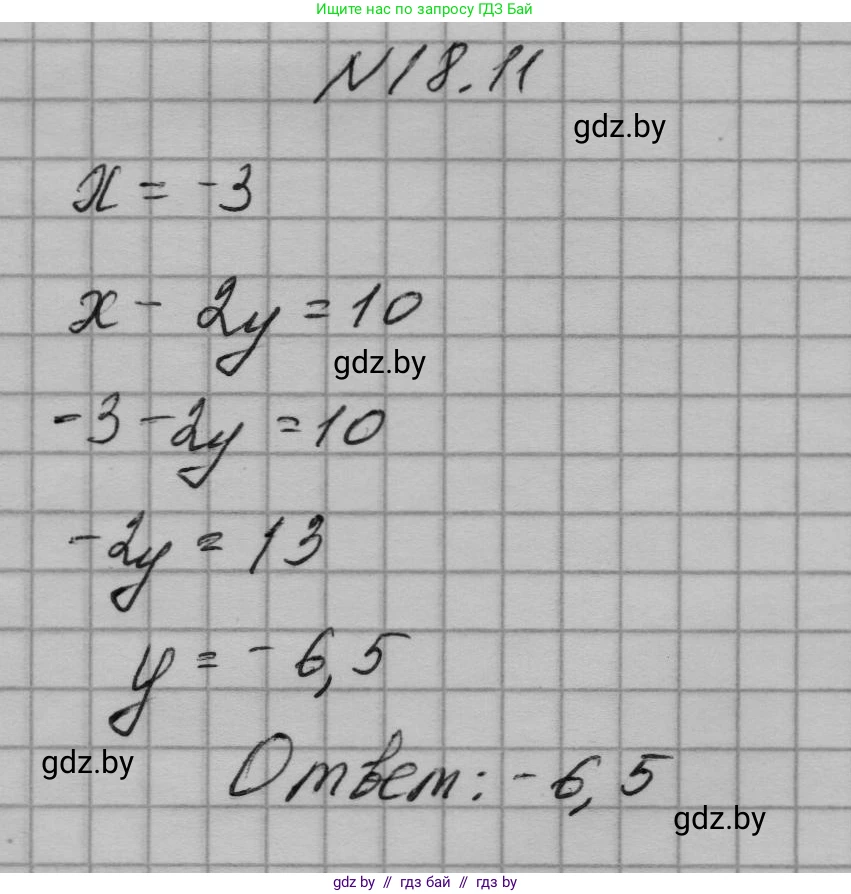 Ищите нас по запросу ГДЗ Бай
N18.11
gdz.by
x = -3
x - 2y = 10
gdz.by
-3 - 2y = 10
-2y = 13
y = - 6,5
gdz.by
Ответ: - 6,5
gdz.by
gdz by // гдз бай // gdz by